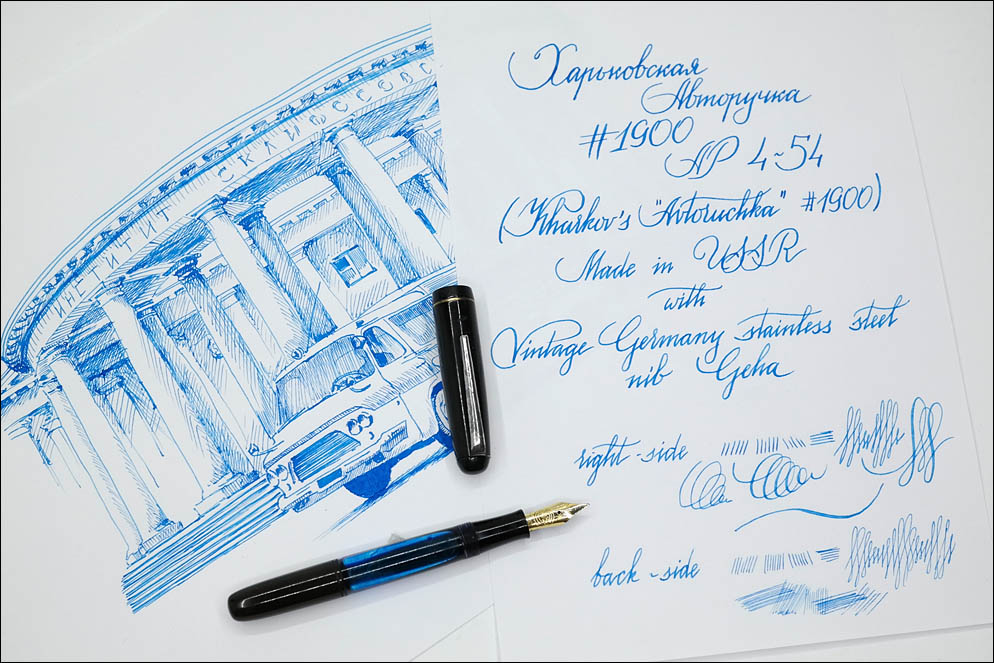 ИНСТИТУТ СКЛИФОСОВС
Харьковская
Авторучка
#1900
АР 4-54
(Kharkov's "Avtoruchka" #1900)
Made in USSR
with
Vintage Germany stainless steel
nib Geha
right-side
back-side